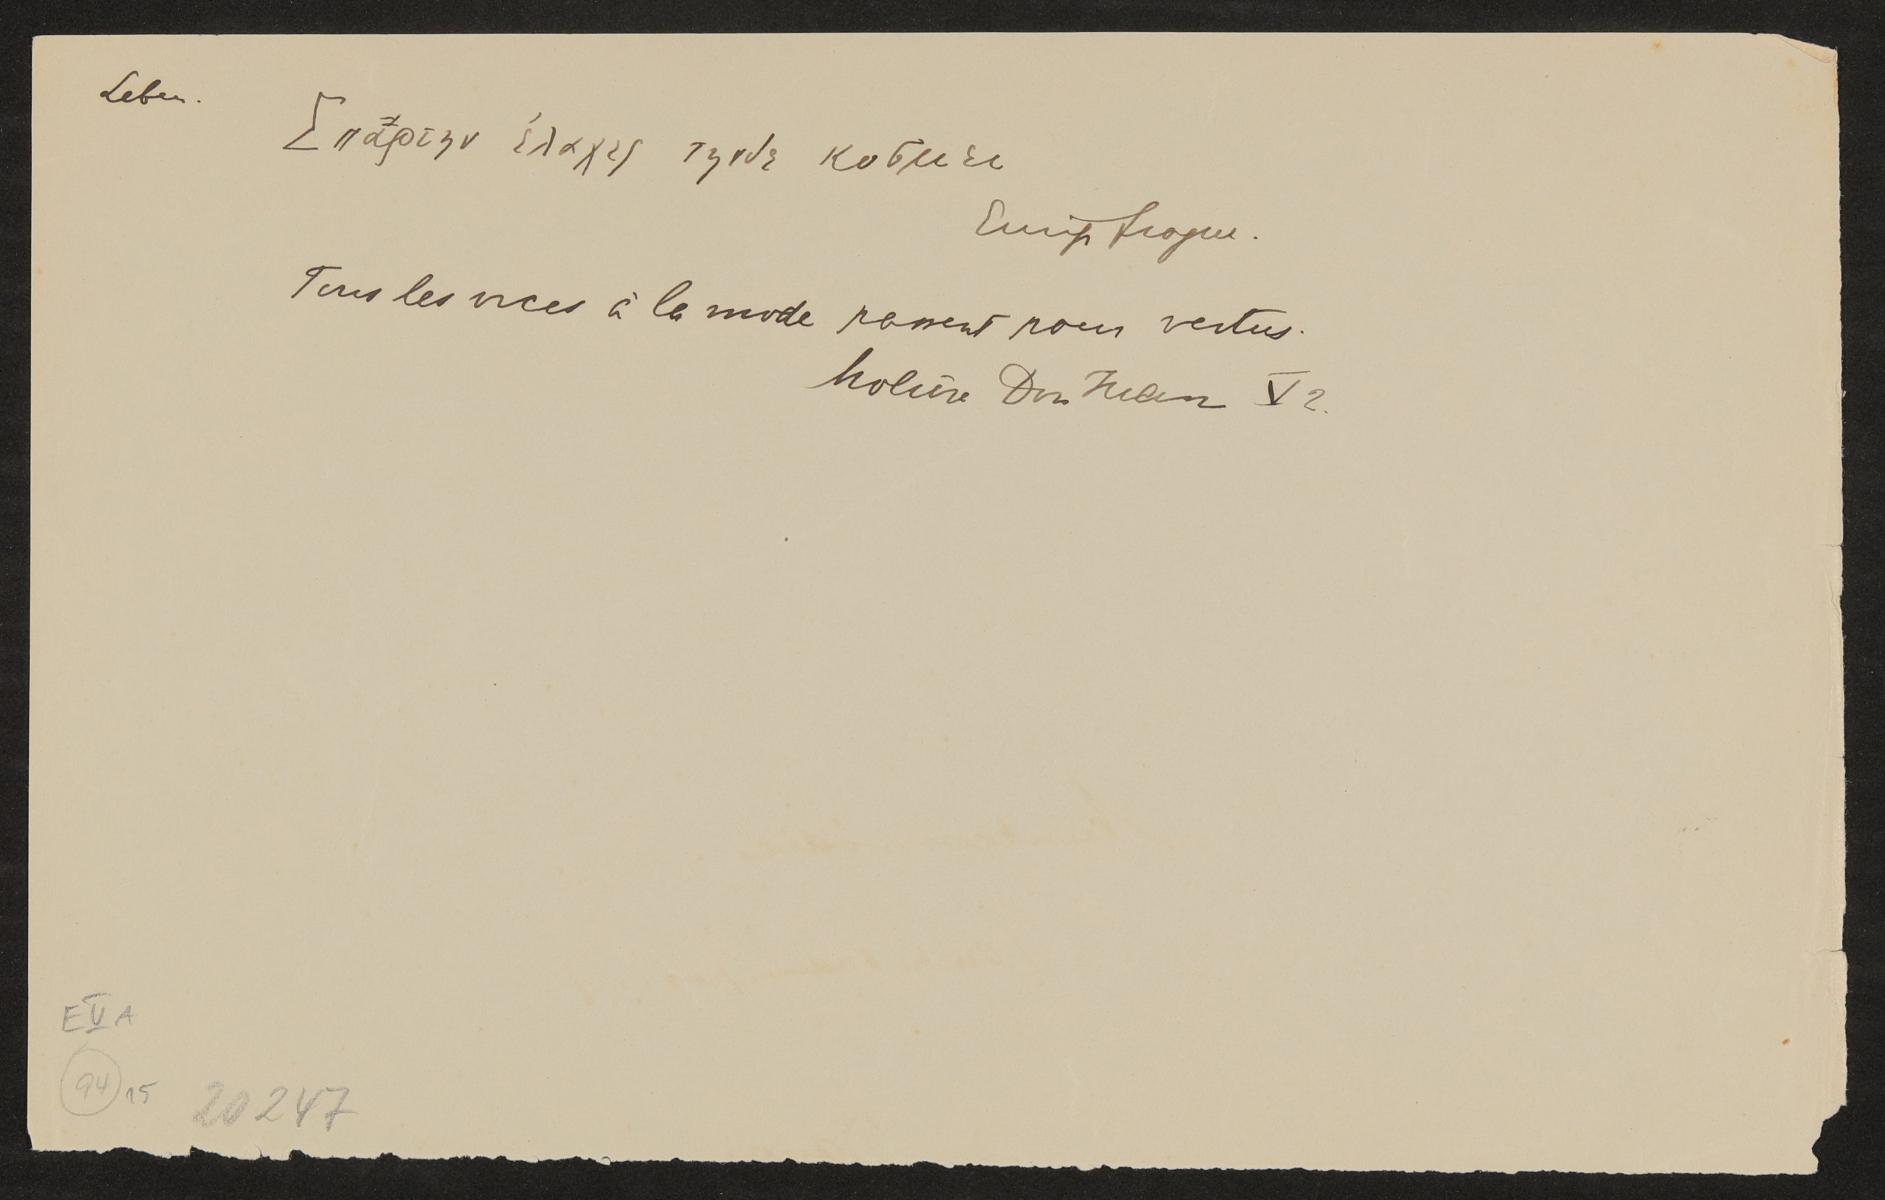 Leben.
Σπαρτην ἐλαχες τηνδε κοσμει
Eurip fragm.
Tous les vices à la mode passent pour vertus.
Molière Don Juan V 2.
E V A
94 15 20247